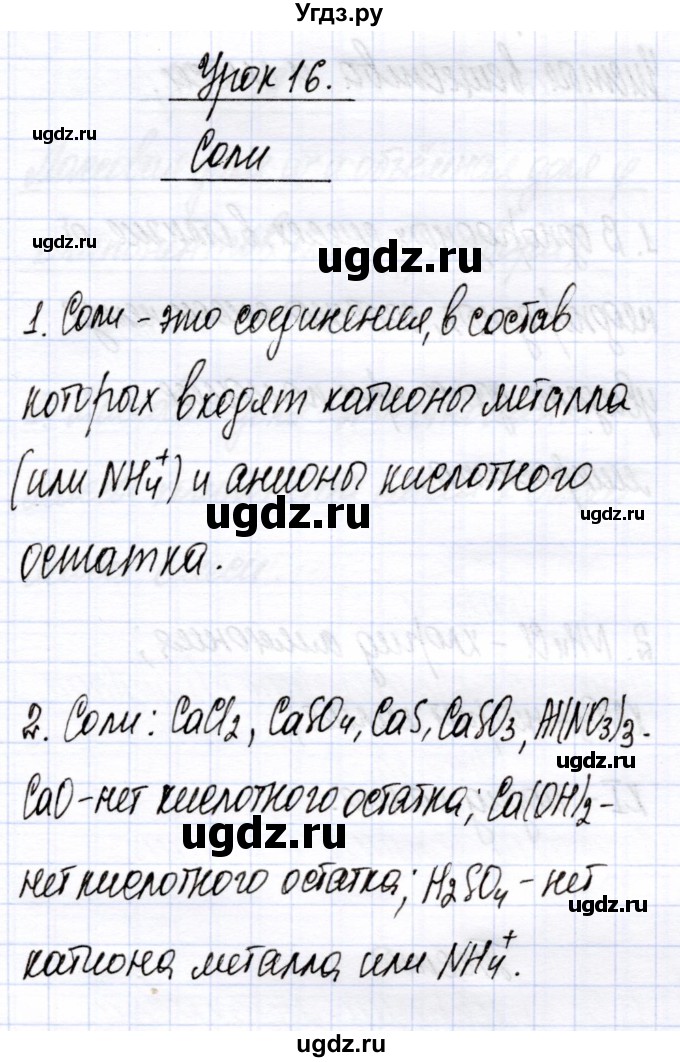 Угдз.ру
Урок 16.
ugdz.ru
Соли
ugdz.ru
ugdz.ru
1. Соли - это соединения, в состав
которых входят катионы металла
(или NH₄⁺) и анионы кислотного
ugdz.ru
ugdz.ru
остатка.
2. Соли: CaCl₂, CaSO₄, CaS, CaSO₃, Al(NO₃)₃.
ugdz.ru
CaO - нет кислотного остатка; Ca(OH)₂ -
ugdz.ru
нет кислотного остатка; H₂SO₄ - нет
ugdz.ru
катиона металла или NH₄⁺.
ugdz.ru